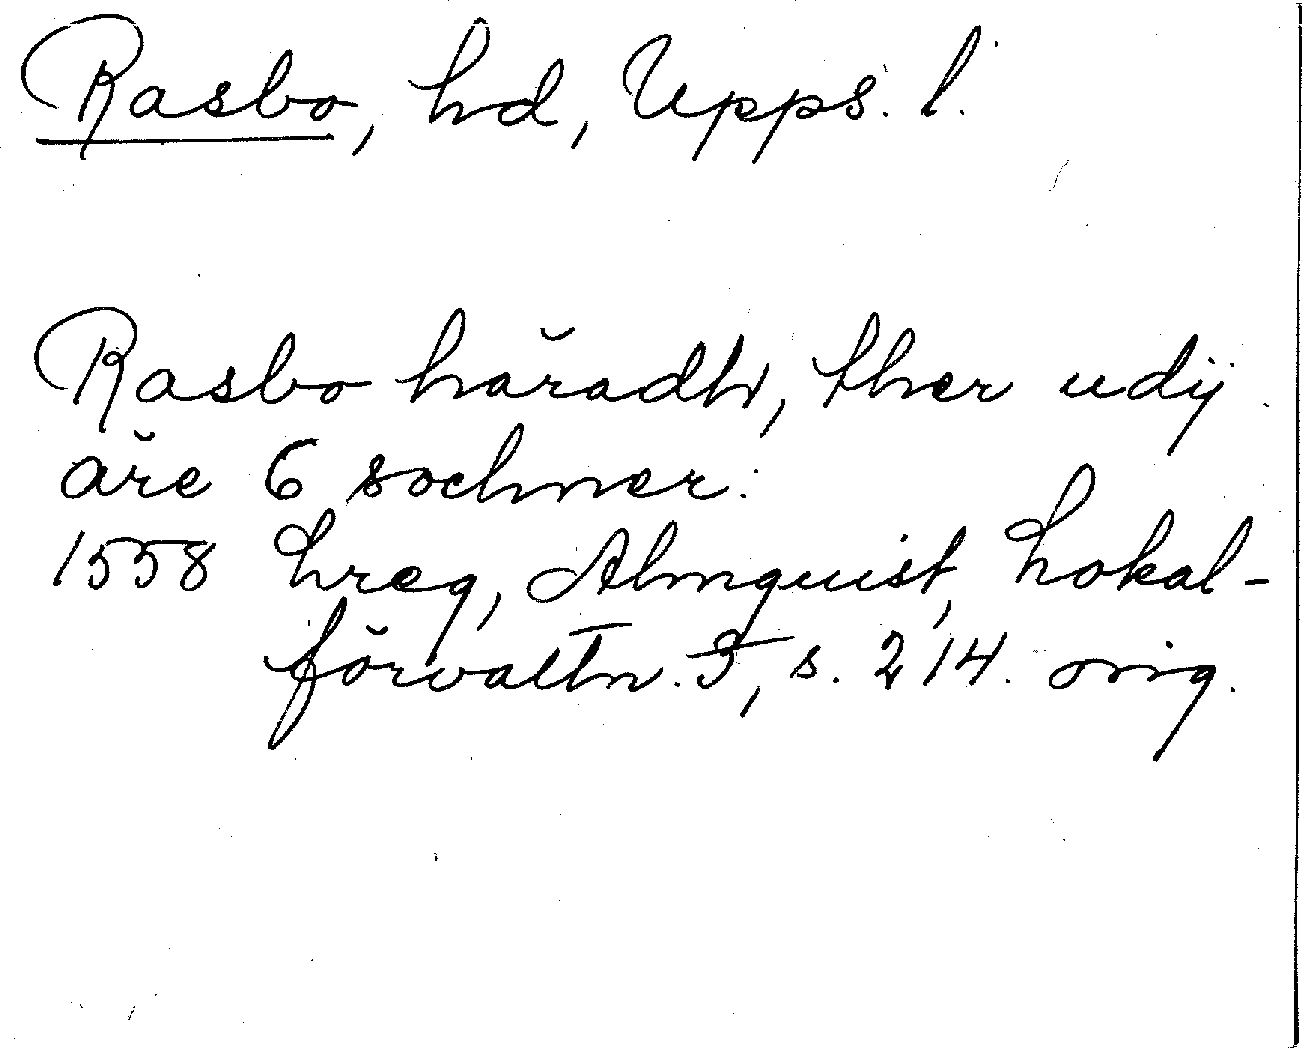 Rasbo, hd, Upps. l.
Rasbo häradh, ther udij
äre 6 sochner.
1558 Lreg, Almquist, Lokal-
förvaltn. 3, s. 214. orig.